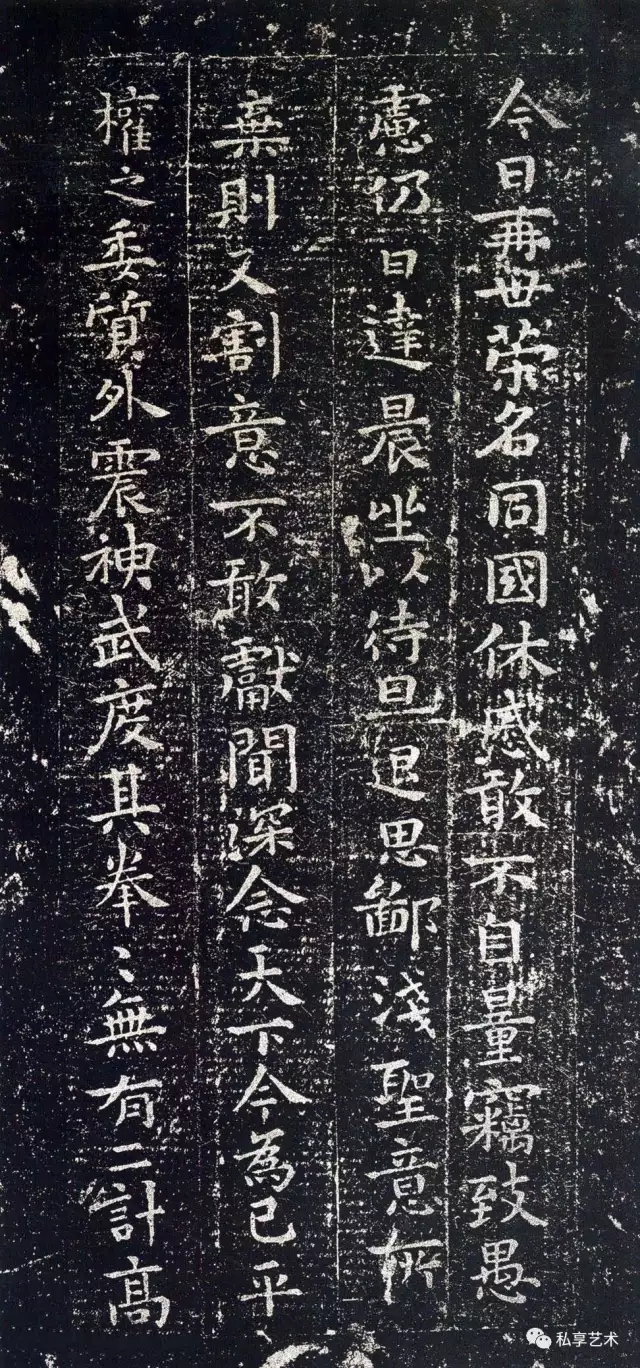 今日再世荣名同國休慼敢不自量竊致愚
慮仍日達晨坐以待旦退思鄙淺聖意所
棄則又割意不敢獻聞深念天下今為已平
權之委質外震神武度其拳〻無有二計高
私享艺术